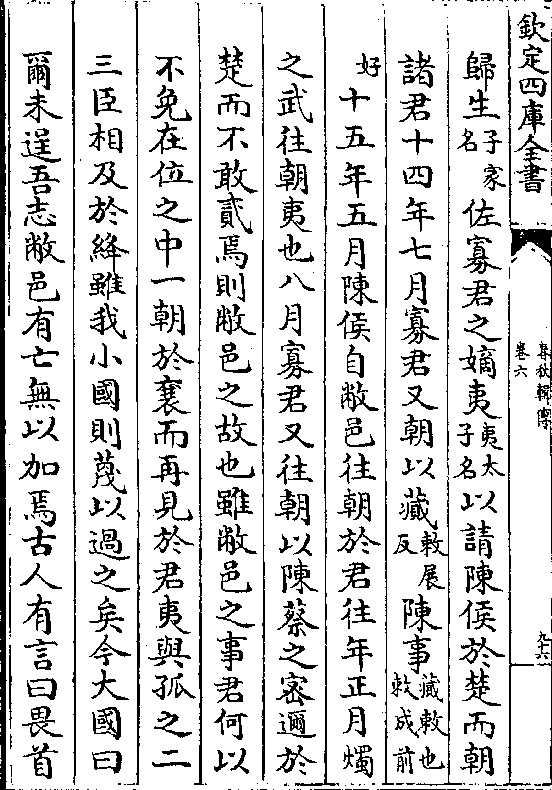 欽定四庫全書
春秋輯傳
卷六
九十六
歸生子家名佐寡君之嫡夷夷太子名以請陳侯於楚而朝
諸君十四年七月寡君又朝以蕆敕展反陳事蕆敕也敕成前
好十五年五月陳侯自敝邑往朝於君往年正月燭
之武往朝夷也八月寡君又往朝以陳蔡之密邇於
楚而不敢貳焉則敝邑之故也雖敝邑之事君何以
不免在位之中一朝於襄而再見於君夷與孤之二
三臣相及於絳雖我小國則蔑以過之矣今大國曰
爾未逞吾志敝邑有亡無以加焉古人有言曰畏首